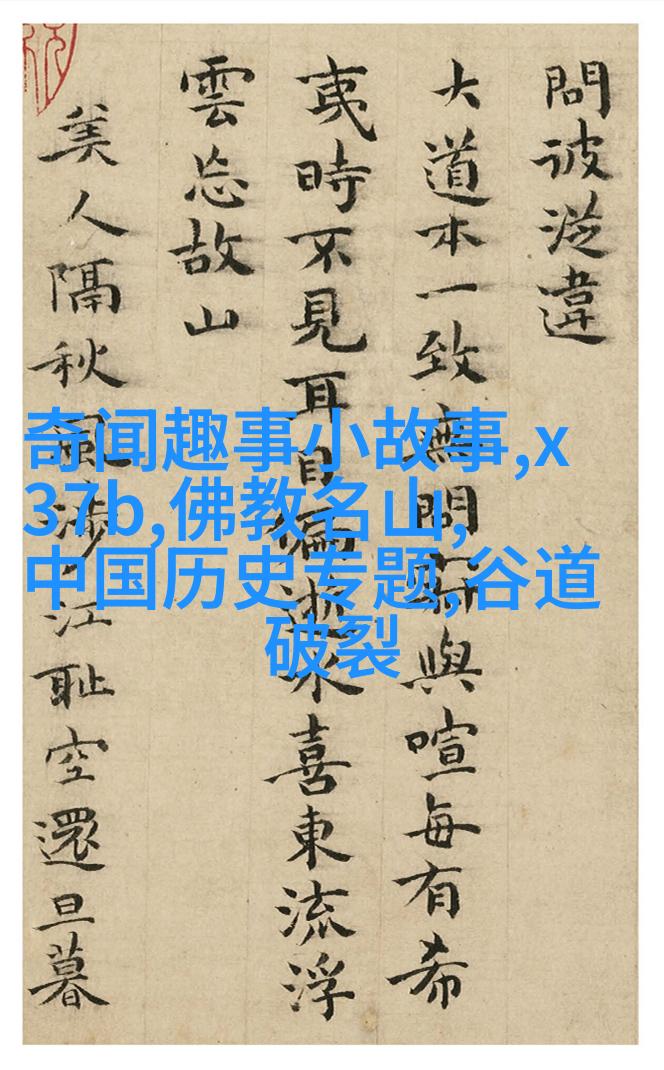 問彼從違
大道本一致無問與喧每有希
夷時不見耳目偏逝水喜東流浮
雲忘故山
美人隔秋風涉江耻空還旦暮
奇闻趣事小故事,x
37b,佛教名山,
中国历史专题,谷道
破裂